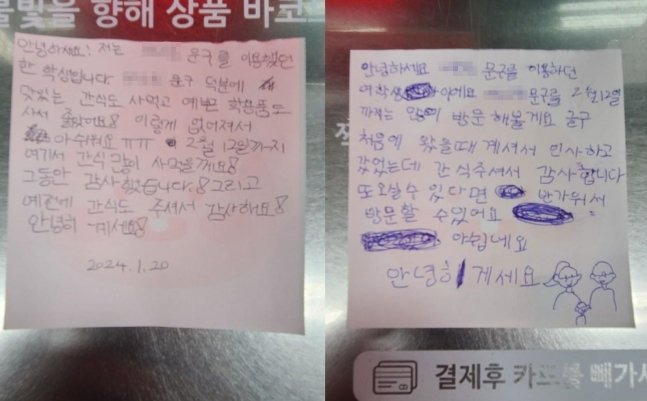 불빛을 향해 상품 바코드
안녕하세요! 저는 문구를 이용했던
한 학생입니다 문구 덕분에
맛있는 간식도 사먹고 예쁜 학용품도
사서 좋았어요! 이렇게 없어져서
아쉬워요 ㅠㅠ 2월 12일까지
여기서 간식 많이 사먹을게요!
그동안 감사했습니다! 그리고
예전에 간식도 주셔서 감사해요!
안녕히 계세요!
2024.1.20
안녕하세요 문구를 이용하던
여학생 이에요 문구를 2월12일
까지는 많이 방문 해볼게요 문구
처음에 왔을때 계셔서 인사하고
갔었는데 간식주셔서 감사합니다
또오실수 있다면 반가워서
방문할 수있어요
아쉽네요
안녕히 계세요
결제후 카드를 빼가세